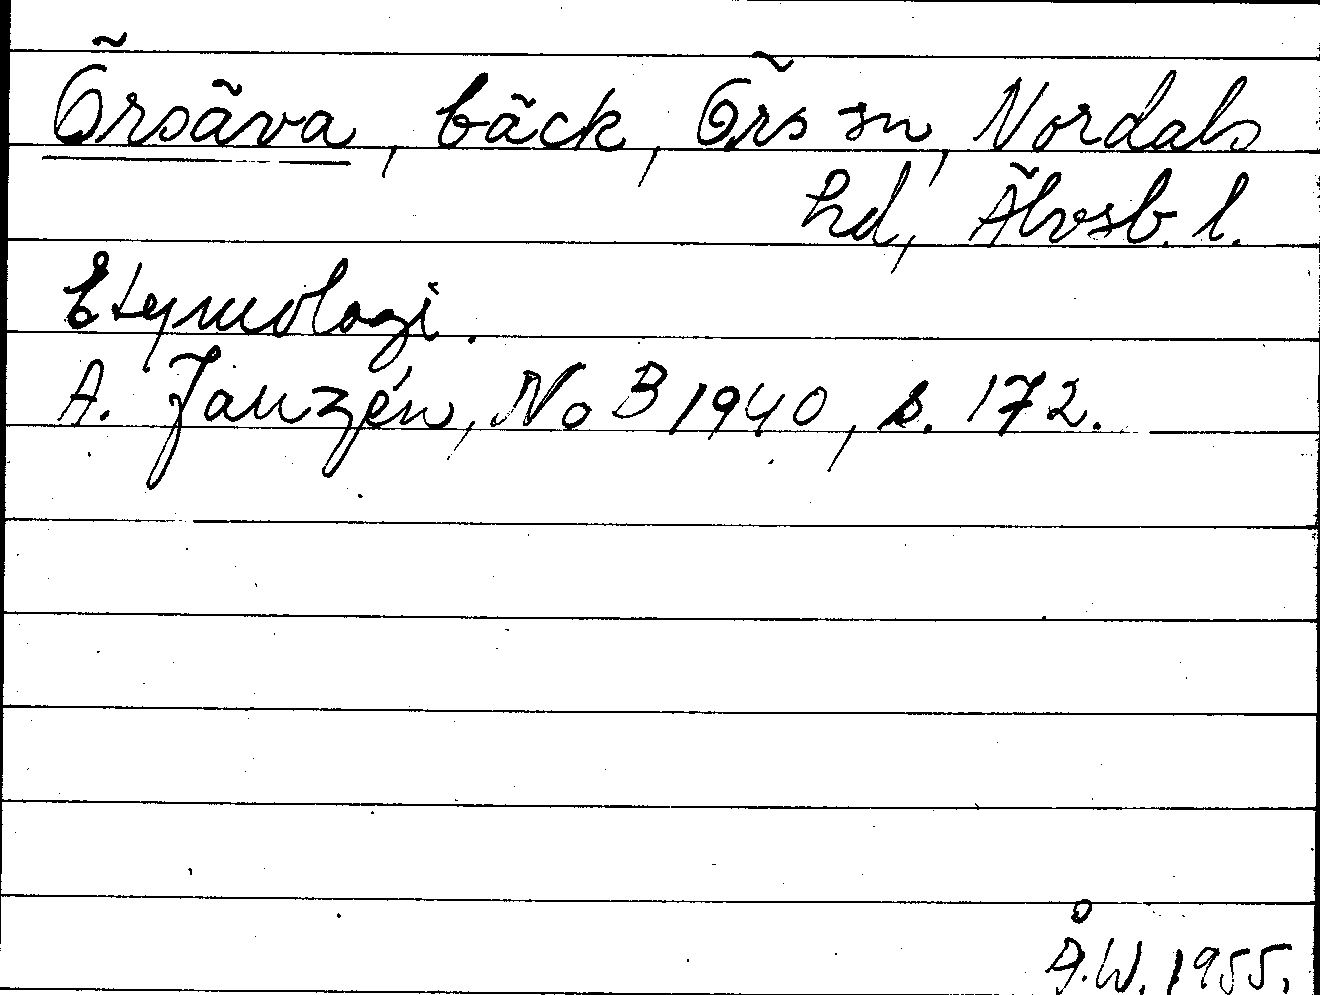 Örsäva, bäck, Örs sn, Nordals
hd, Älvsb. l.
Etymologi.
A. Janzén, NoB 1940, s. 172.
Å.W. 1955.